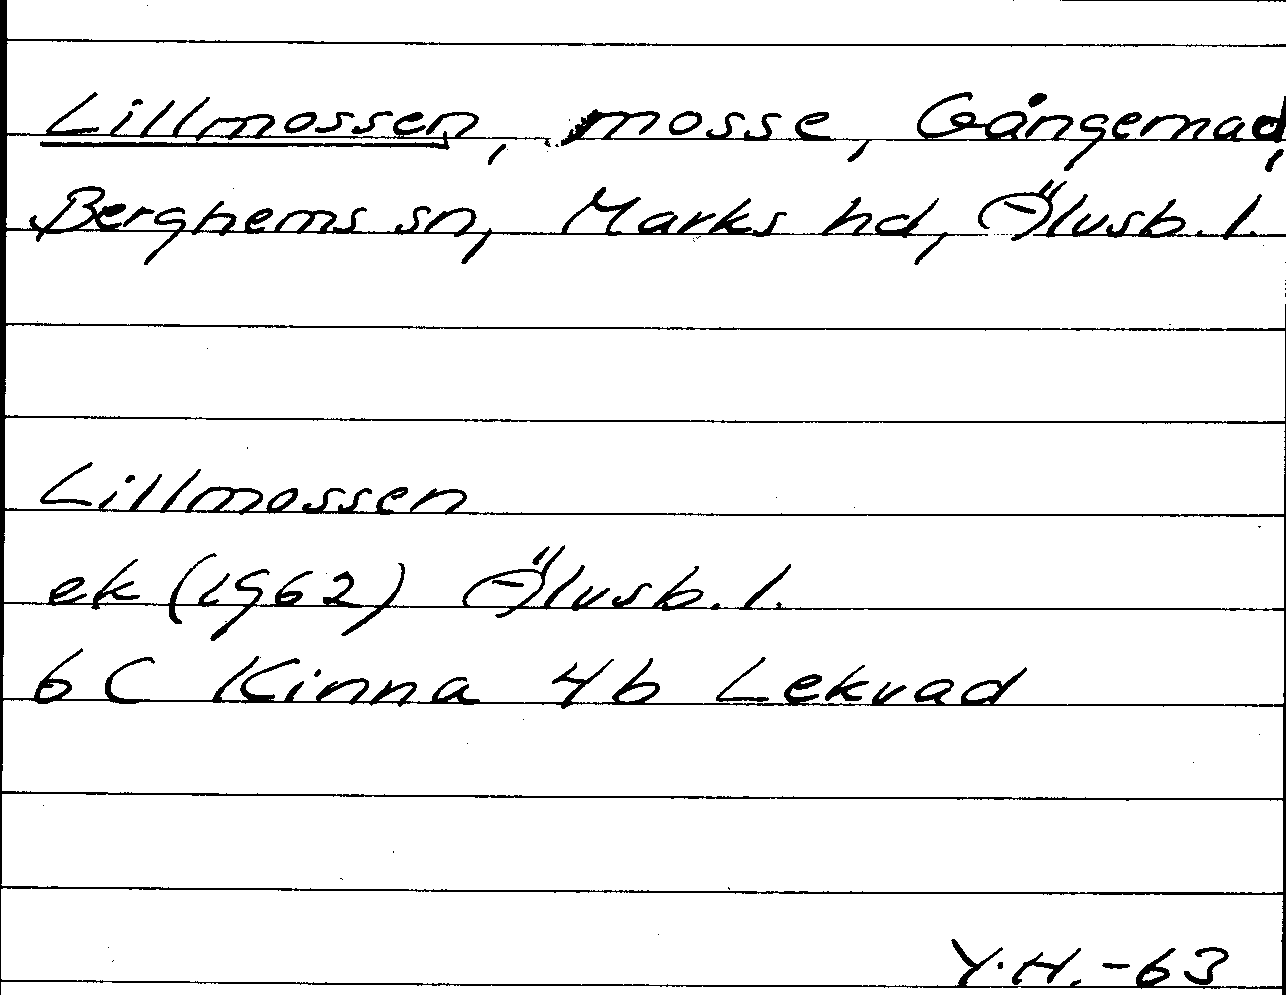 Lillmossen, mosse, Gångemad,
Berghems sn, Marks hd, Älvsb. l.
Lillmossen
ek (1962) Älvsb. l.
6 C Kinna 4b Lekvad
Y.H. -63